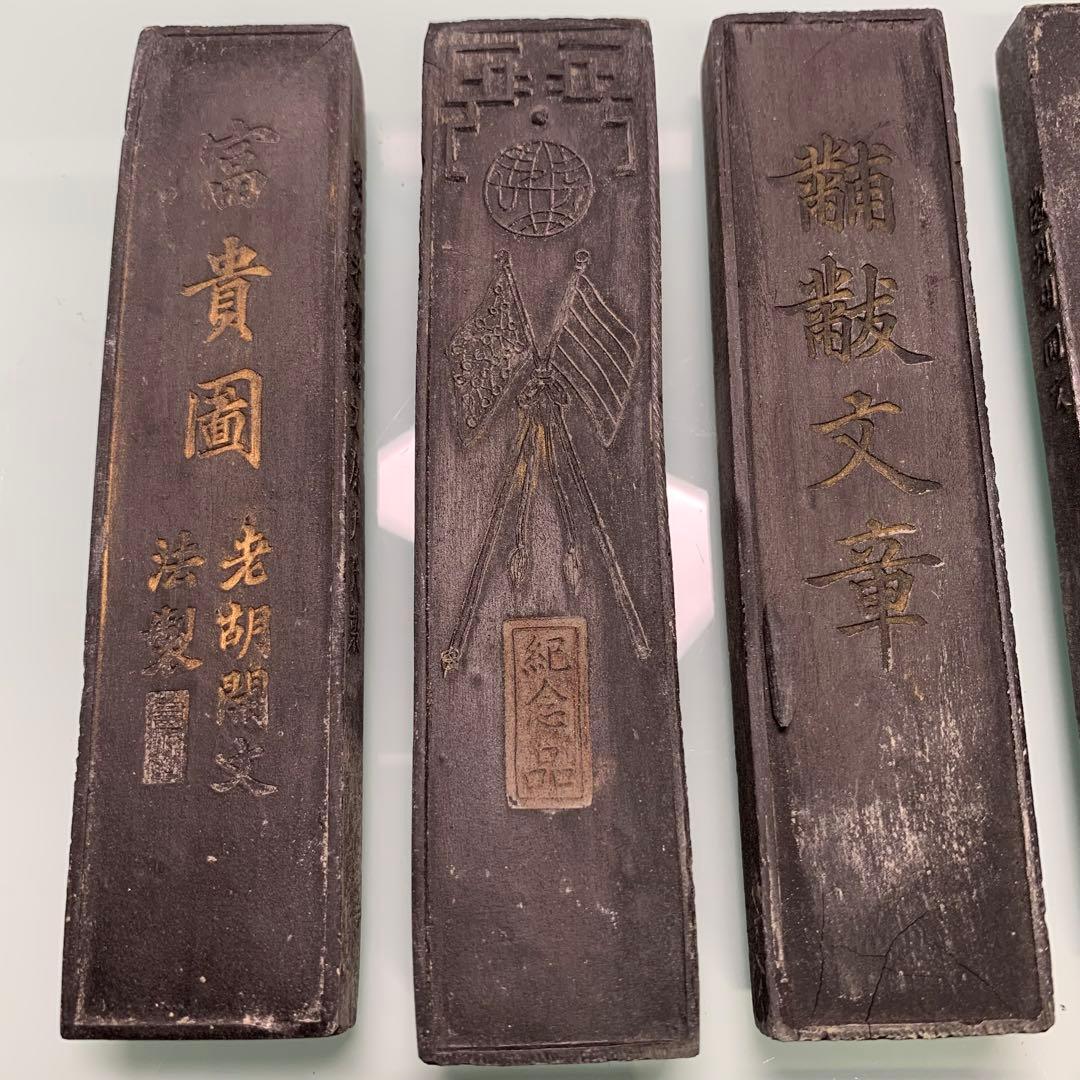 富貴圖
老胡開文
法製
紀念品
黼黻文章